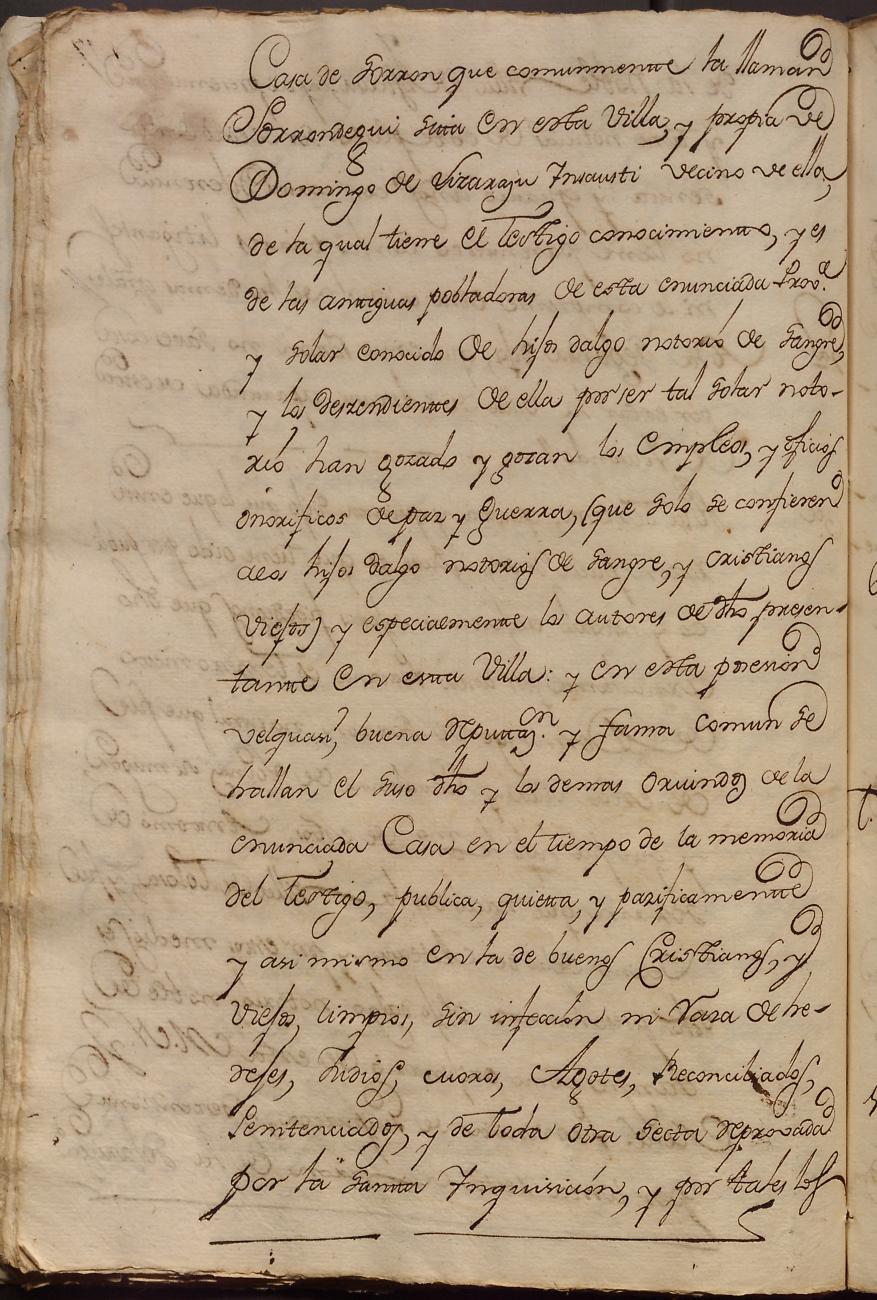 Casa de Sorron que comunmente la llaman
Sorrondegui sita en esta Villa, y propia de
Domingo de Lizarazu Insausti vecino de ella,
de la qual tiene el Testigo conocimiento, y es
de las antiguas pobladoras de esta enunciada Prov.ª
y Solar conocido de hijos dalgo notorio de Sangre,
y los deszendientes de ella por ser tal Solar noto-
rio han gozado y gozan los Empleos, y oficios
onorificos de paz y Guerra, (que solo se confieren
a los hijos dalgo notorios de Sangre, y cristianos
viejos) y especialmente los autores de dho presen-
tante en esta Villa: y en esta posesion
velquasi, buena Reputtaz.on y fama comun se
hallan el suso dho y los demas oriundos de la
enunciada Casa en el tiempo de la memoria
del Testigo, publica, quietta, y pazificamentte
y asi mismo en la de buenos Cristianos, y
viejos, limpios, sin infeccion ni Raza de he-
dejes, Judios, moros, Agotes, Reconciliados,
Penitenciados, y de toda otra secta Reprovada
por la Santta Inquisición, y por tales los